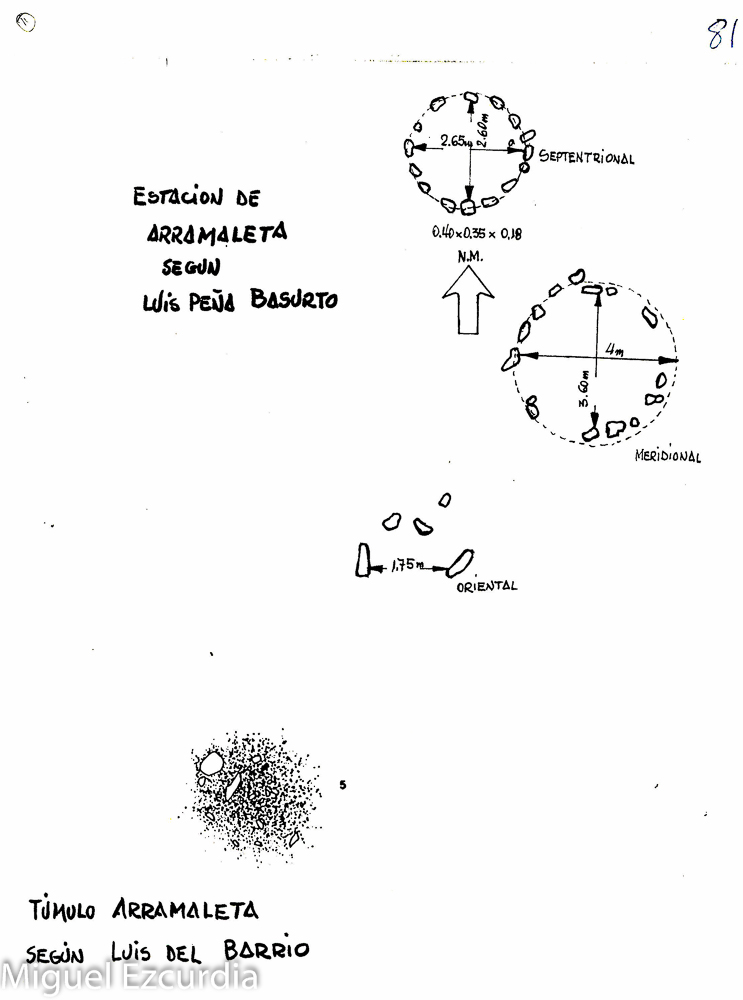 81
ESTACION DE
ARRAMALETA
SEGUN
LUIS PEÑA BASURTO
2.65m
2.60m
SEPTENTRIONAL
0.40x0.35x0.18
N.M.
4m
3.60m
MERIDIONAL
1.75m
ORIENTAL
5
TÚMULO ARRAMALETA
SEGÚN LUIS DEL BARRIO
Miguel Ezcurdia